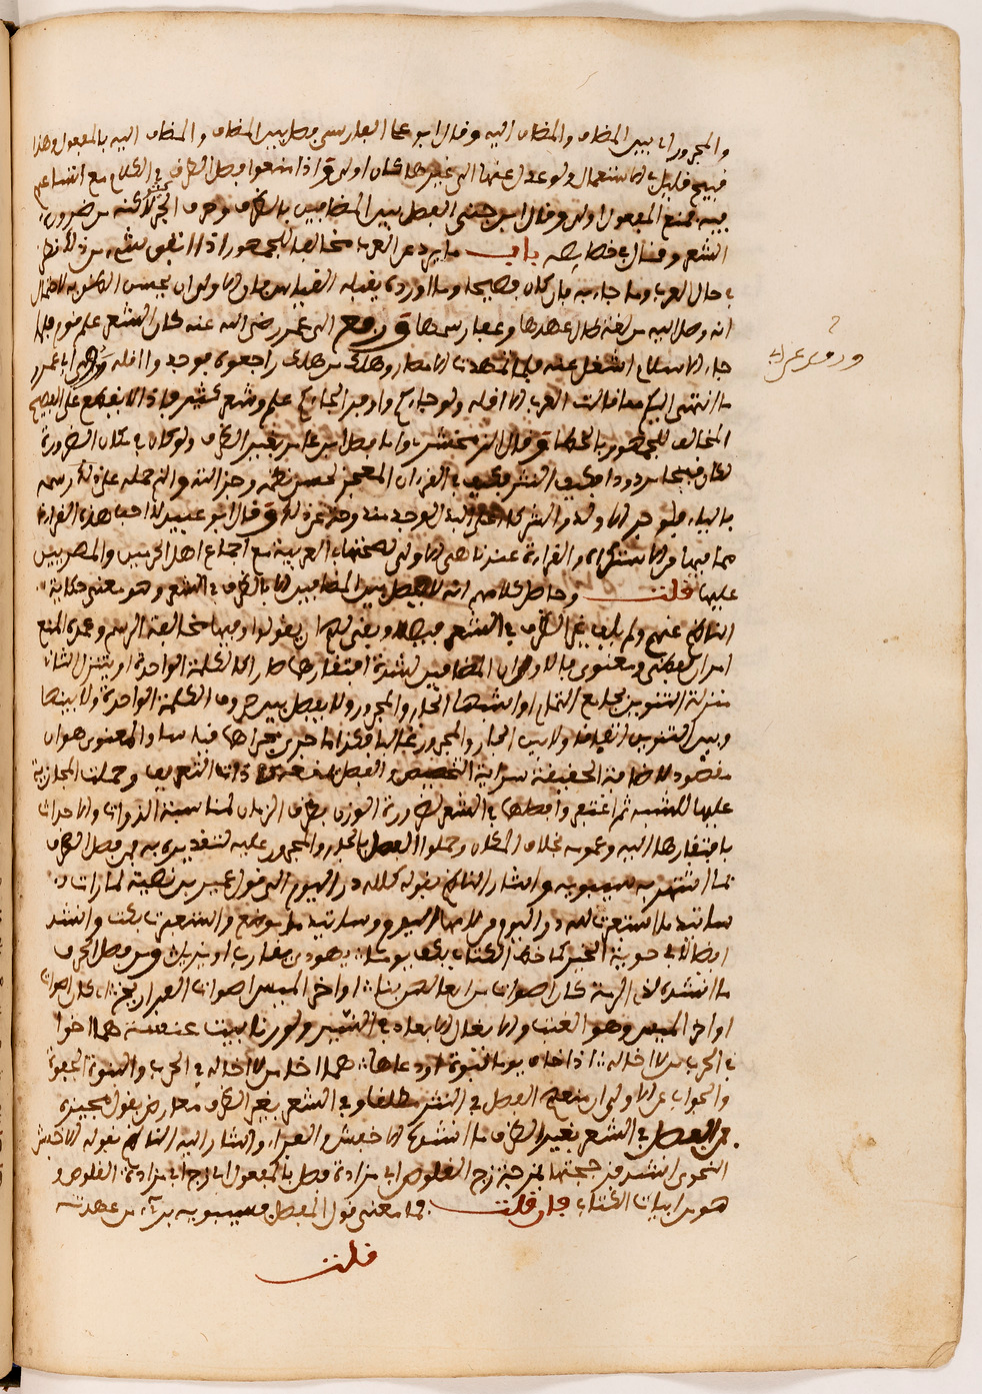 والمجرورات بين المضاف والمضاف اليه وقال ابو علي الفارسي فصل بين المضاف والمضاف اليه بالمفعول وهذا
قبيح قليل في الاستعمال ولو عدل عنها الى غيرها كان اولى واذا منعوا فصل الظرف في الكلام مع اتساعهم
فيه فمنع المفعول اولى وقال ابن جني الفصل بين المضافين بالظرف وحرف الجر كثير لاكنه من ضرورة
الشعر وقال في خصائصه باب ما يرد عن العرب مخالفا للجمهور اذا اتفق شيء من ذلك نظر
في حال العربي وما جاء به فان كان فصيحا وما اورده يقبله القياس فان الاولى ان يحسن الظن به لاحتمال
انه وصل اليه من لغة طال عهدها وعفا رسمها ورفع الى عمر رضي الله عنه كان الشعر علم قوم فلما
جاء الاسلام اشتغل عنه فلما تمهدت الامصار وهلك من هلك راجعوه فوجدوا اقله وروى ابا عمرو
ما انتهى اليكم مما قالت العرب الا اقله ولو جاءكم وافرا لجاءكم علم وشعر كثير فاذا لا يقطع على الفصيح
المخالف للجمهور بالخطا وقال الزمخشري واما فصل ابن عامر بغير الظرف ولو كان في مكان الضرورة
لكان قبيحا مردودا فكيف النثر فكيف في القرءان المعجز لحسن نظمه وجزالته والذي حمله على ذلك رسمه
بالياء فلو جر الاولاد والشركاء لوجد مندوحة عن ذلك وقال ابو عبيد لا احب هذه القراءة
لما فيها من الاستكراه والقراءة عندنا هي الاولى لصحتها في العربية مع اجماع اهل الحرمين والمصرين
عليها قلت وحاصل كلامهم انه لا يفصل بين المضافين الا بالظرف في الشعر وهو معنى حكاية
الناظم عنهم ولم يلف غير الظرف في الشعر فيصلا وبقي لهم ان يقولوا وفيها مخالفة الرسم وعمدة المنع
امران لفظي ومعنوي فالاول ان المضافين لشدة افتقارهما صارا كالكلمة الواحدة او يتنزل الثاني
منزلة التنوين بجامع التمام او اشبها الجار والمجرور ولا يفصل بين حروف الكلمة الواحدة ولا بينها
وبين التنوين اتفاقا ولا بين الجار والمجرور غالبا فكذا ما جرى مجراها قياسا والمعنوي هو ان
مقصود الاضافة الحقيقية سراية التخصيص والفصل ذات التعريف وحملت المجازية
عليها للشبه ثم اغتفر وافصلها في الشعر لضرورة الوزن بظرف الزمان لمناسبة الذوات والاحداث
بافتقارها اليه وعمومه بخلاف المكان وحملوا الفصل بالجار والمجرور عليه لتقديره به فمن فصل الظرف
مما اشتهر به سيبويه واشار الناظم بقوله كلله در اليوم الى قول عمرو بن قميئة لما رات
ساتيدما استعبرت لله در اليوم من لامها وساتيدما موضع واستعبرت بكت وانشد
ايضا لابي حية النميري كما خط الكتاب بكف يوما يهودي يقارب او يزيل ومن فصل الحرف
ما انشده لذي الرمة كان اصوات من ايغالهن بنا اواخر الميس اصوات الفراريج اي كان اصوات
اواخر الميس وهو القتب والايغال الابعاد في السير ولدرنا بنت عبعبة هما اخوا
في الحرب من لا اخا له اذا خاف يوما نبوة ودعاهما اي هما اخوا من لا اخا له في الحرب والنبوة الجفوة
والجواب عن الاول ان منعهم الفصل في النثر مطلقا وفي الشعر بغير الظرف معارض بقول مجيزه
من الفصل في الشعر بغير الظرف ما انشده الاخفش والفراء واشار اليه الناظم بقوله الاخفش
النحوي انشد فزججتها بمزجة زج القلوص ابي مزادة فصل بالمفعول اي زج ابي مزادة القلوص و
هو من ابيات الكتاب فان قلت فما معنى قول المفصل وسيبويه برئ من عهدته
قلت